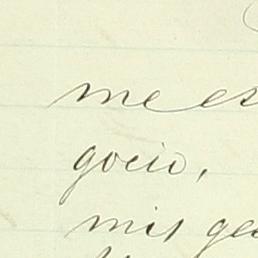 me es
gocio,
mis ge